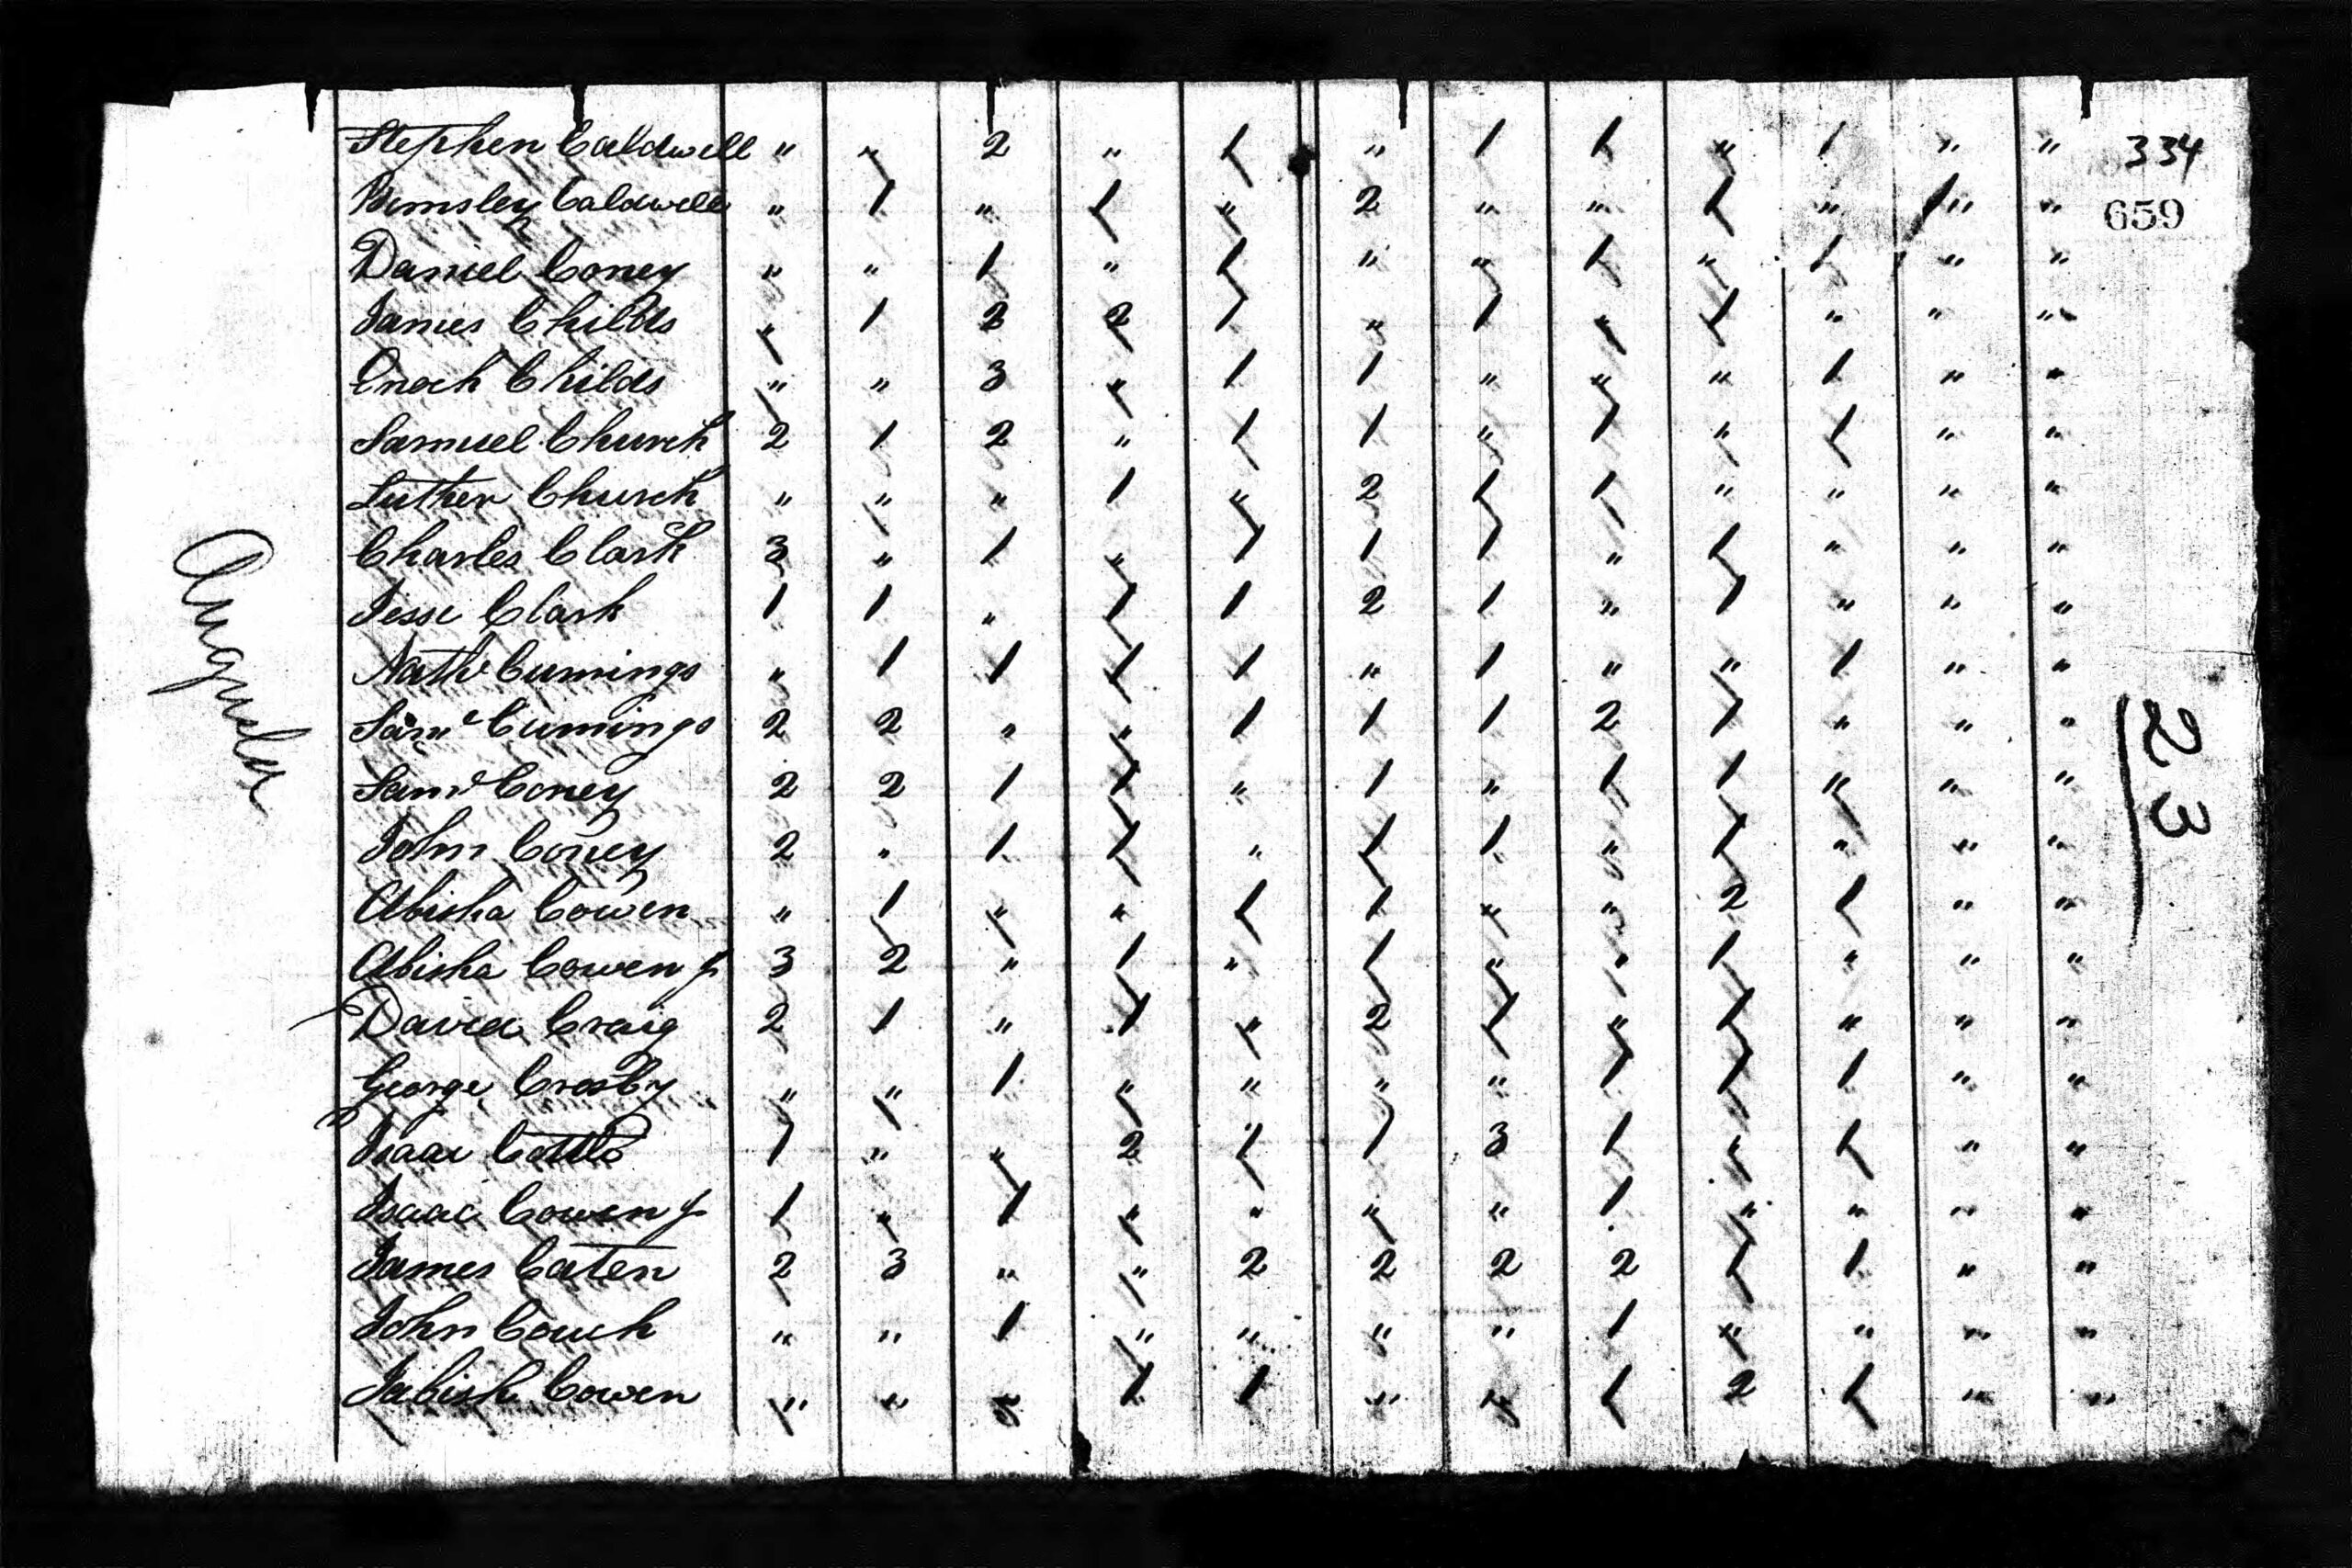 Stephen Caldwell " " 2 " 1 " 1 1 " 1 " " 334
Bemsley Caldwell " 1 " 1 " 2 " " 1 " 1" "
659
Daniel Coney " " 1 " 1 " " 1 " 1 " "
James Childs " 1 2 2 1 " 1 " 1 " " "
Enoch Childs " " 3 " 1 1 " " " 1 " "
Samuel Church 2 1 2 " 1 1 " 1 " 1 " "
Luther Church " " " 1 " 2 1 1 " " " "
Charles Clark 3 " 1 " 1 1 1 " 1 " " "
Jesse Clark 1 1 " 1 1 2 1 " 1 " " "
Nathl Cumings " 1 1 1 1 " 1 " " 1 " "
Saml Cumings 2 2 " " 1 1 1 2 1 " " "
Saml Coney 2 2 1 1 " 1 " 1 1 " " "
John Coney 2 " 1 1 " 1 1 " 1 " " "
Abisha Cowen " 1 " " 1 1 " " 2 1 " "
Abisha Cowen Jr 3 2 " 1 " 1 " " 1 " " "
David Craig 2 1 " 1 " 2 1 " 1 " " "
George Crosby " " 1 " " " " 1 1 1 " "
Isaac Cottle 1 " " 2 1 1 3 1 " 1 " "
Isaac Cowen Jr 1 " 1 " " " " 1 " " " "
James Caten 2 3 " " 2 2 2 2 1 1 " "
John Couch " " 1 " " " " 1 " " " "
Jabish Cowen " " " 1 1 " " 1 2 1 " "
Augusta
23